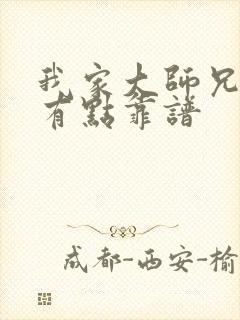 我家大師兄
有點靠譜
成都-西安-榆